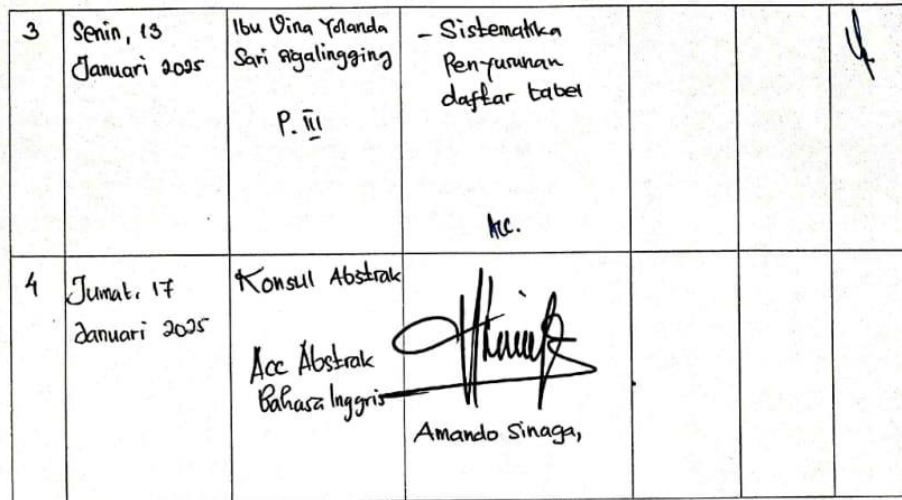 3
Senin, 13
Januari 2025
Ibu Vina Yolanda
Sari Sigalingging
P. III
- Sistematika
Penyusunan
daftar tabel
Acc.
4
Jumat, 17
Januari 2025
Konsul Abstrak
Acc Abstrak
Bahasa Inggris
Amando Sinaga,